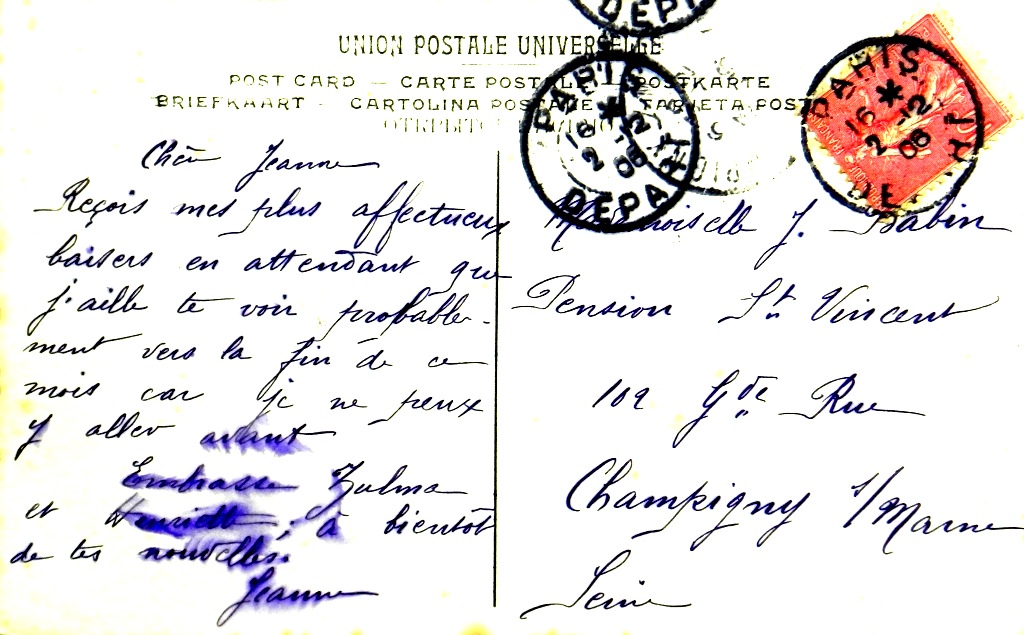 DEPA
UNION POSTALE UNIVERSELLE
POST CARD — CARTE POSTALE — POSTKARTE
BRIEFKAART - CARTOLINA POSTALE - TARJETA POST
PARIS DEPART
16 * 2 -12 06
PARIS DEPART
16 * 2 -12 06
Chère Jeanne
Reçois mes plus affectueux
baisers en attendant que
j'aille te voir probable-
ment vers la fin de ce
mois car je ne peux
y aller avant
Embrasse Zulma
et Henriette, à bientôt
de tes nouvelles.
Jeanne
Mademoiselle J. Babin
Pension St Vincent
102 Gde Rue
Champigny s/Marne
Seine